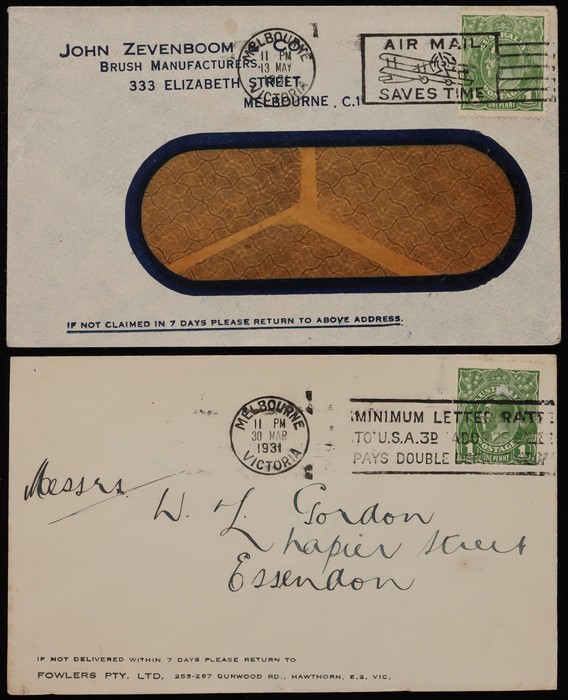 JOHN ZEVENBOOM & CO.
BRUSH MANUFACTURERS,
333 ELIZABETH STREET,
MELBOURNE, C.1
MELBOURNE
11 PM
13 MAY
1931
VICTORIA
AIR MAIL
SAVES TIME
POSTAGE
1
ONE PENNY
IF NOT CLAIMED IN 7 DAYS PLEASE RETURN TO ABOVE ADDRESS.
MELBOURNE
11 PM
30 MAR
1931
VICTORIA
MINIMUM LETTER RATE
TO U.S.A. 3D
PAYS DOUBLE
POSTAGE
1 1
ONE PENNY
Messrs.
W. L. Gordon
Napier Street
Essendon
IF NOT DELIVERED WITHIN 7 DAYS PLEASE RETURN TO
FOWLERS PTY. LTD. 253-267 BURWOOD RD., HAWTHORN, E.2, VIC.